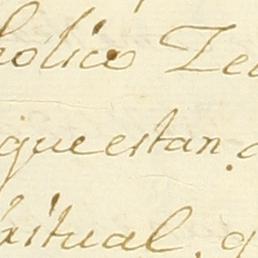 holico Ze
que estan.
itual. q